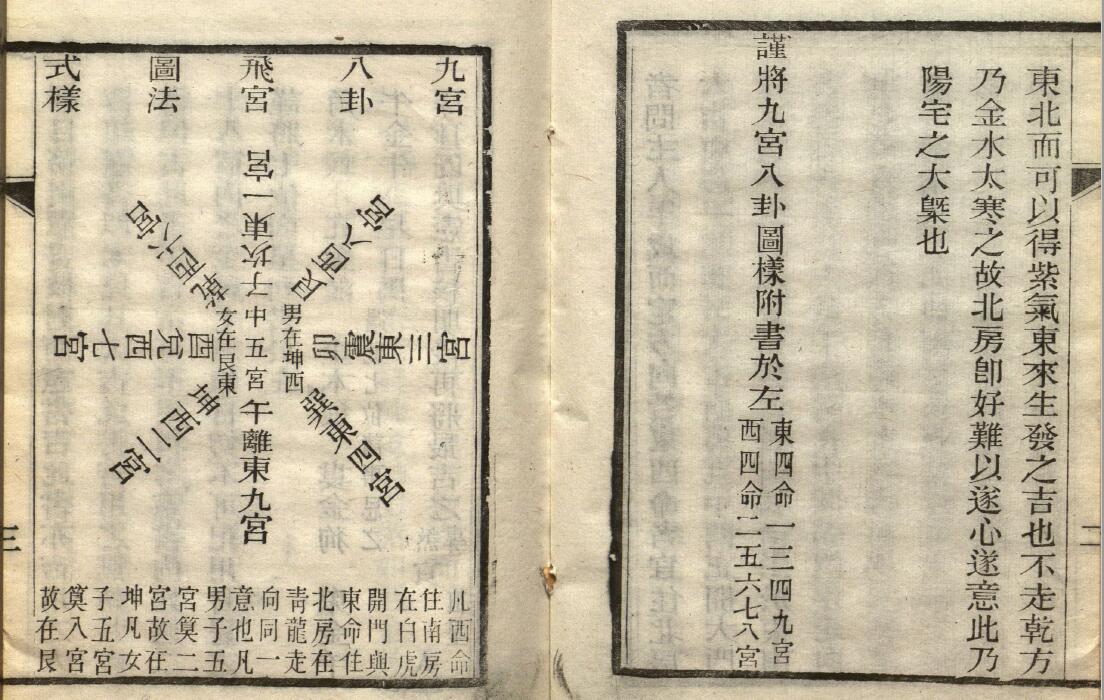 東北而可以得紫氣東來生發之吉也不走乾方
乃金水太寒之故北房卽好難以遂心遂意此乃
陽宅之大槩也
謹將九宮八卦圖樣附書於左
東四命一三四九宮
西四命二五六七八宮
二
九宮
八卦
飛宮
圖法
式樣
宮一東坎子
宮八西艮
宮三東震卯
巽東四宮
午離東九宮
坤西二宮
宮七西兌酉
宮六西乾
中五宮
男在坤西
女在艮東
凡西命
住南房
在白虎
開門與
東命住
北房在
靑龍走
向同一
意也凡
男子五
宮筭二
宮故在
坤凡女
子五宮
筭八宮
故在艮
三